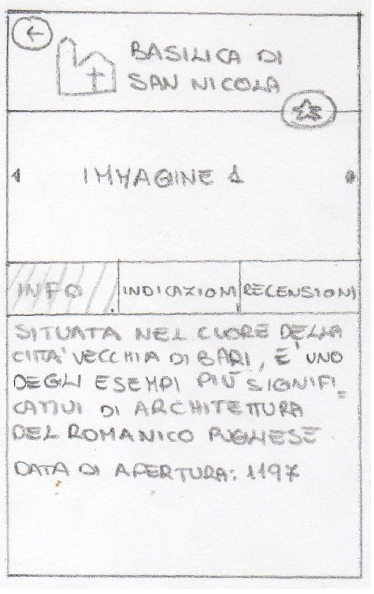 BASILICA DI
SAN NICOLA
IMMAGINE 1
INFO
INDICAZIONI
RECENSIONI
SITUATA NEL CUORE DELLA
CITTA' VECCHIA DI BARI, E' UNO
DEGLI ESEMPI PIÙ SIGNIFI=
CATIVI DI ARCHITETTURA
DEL ROMANICO PUGLIESE
DATA DI APERTURA: 1197